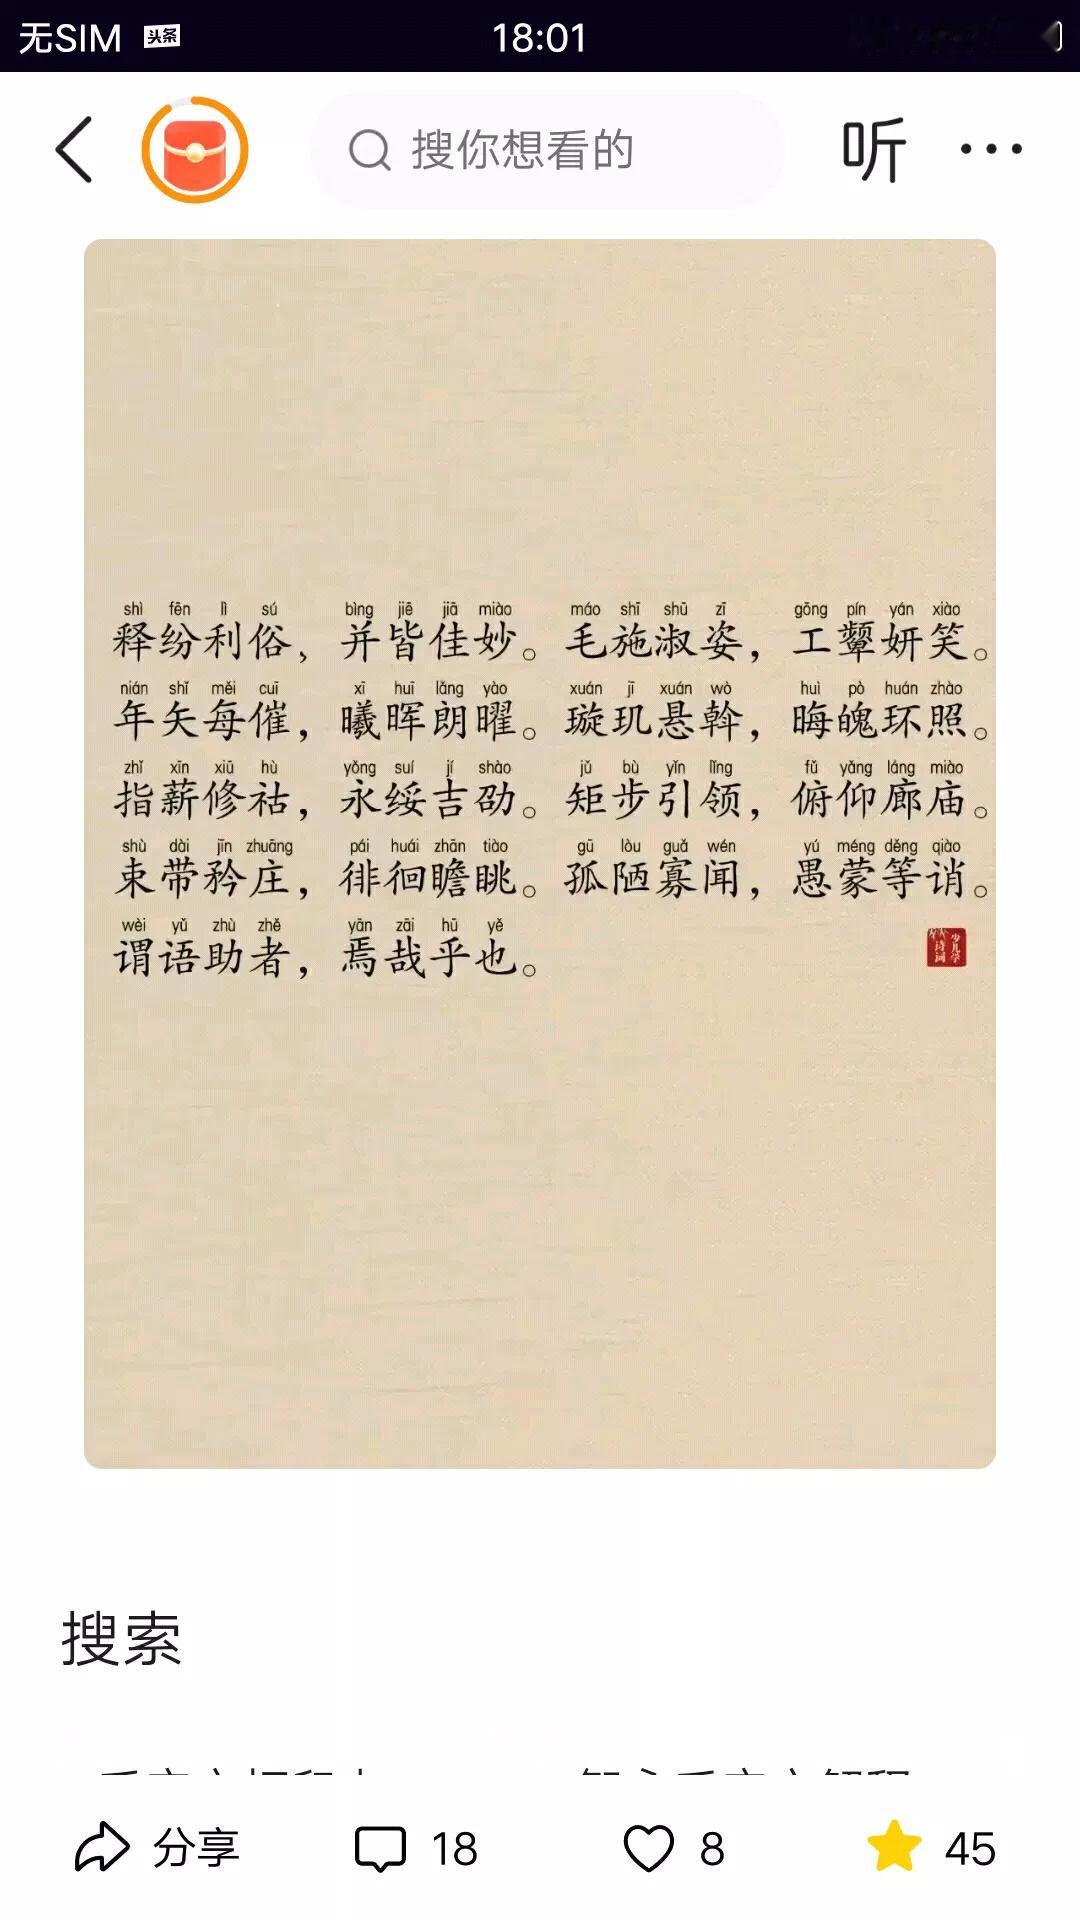 无SIM 头条 18:01
搜你想看的 听
shì fēn lì sú bìng jiē jiā miào máo shī shū zī gōng pín yán xiào
释纷利俗，并皆佳妙。毛施淑姿，工颦妍笑。
nián shǐ měi cuī xī huī lǎng yào xuán jī xuán wò huì pò huán zhào
年矢每催，曦晖朗曜。璇玑悬斡，晦魄环照。
zhǐ xīn xiū hù yǒng suí jí shào jǔ bù yǐn lǐng fǔ yǎng láng miào
指薪修祜，永绥吉劭。矩步引领，俯仰廊庙。
shù dài jīn zhuāng pái huái zhān tiào gū lòu guǎ wén yú méng děng qiào
束带矜庄，徘徊瞻眺。孤陋寡闻，愚蒙等诮。
wèi yǔ zhù zhě yān zāi hū yě
谓语助者，焉哉乎也。
少儿学诗词
搜索
分享 18 8 45